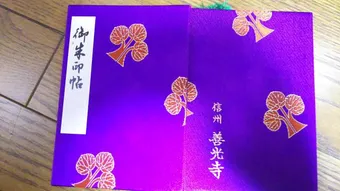 御朱印帖
信州
善光寺